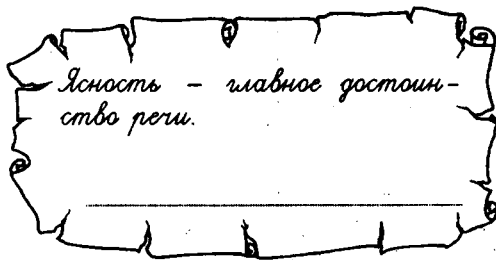 Ясность – главное достоин-
ство речи.